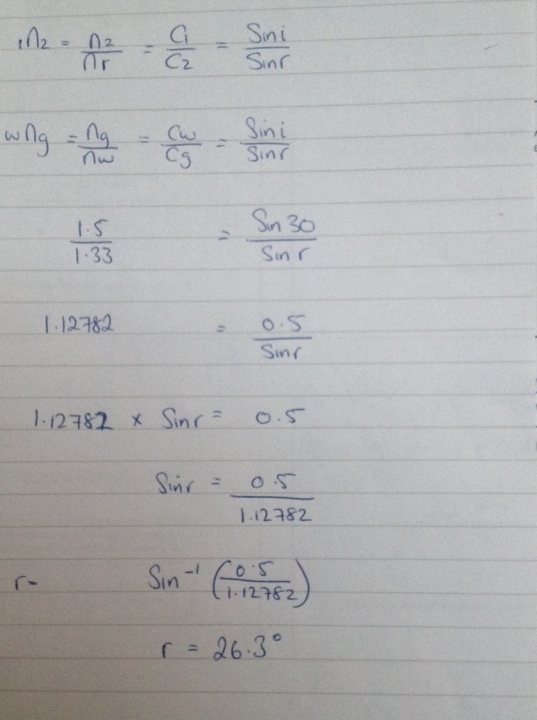 ₁n₂ = n₂/nr = C₁/C₂ = Sini/Sinr
wng = ng/nw = Cw/Cg = Sini/Sinr
1.5/1.33 = Sin 30/Sin r
1.12782 = 0.5/Sinr
1.12782 × Sinr = 0.5
Sinr = 0.5/1.12782
r= Sin⁻¹ (0.5/1.12782)
r = 26.3°